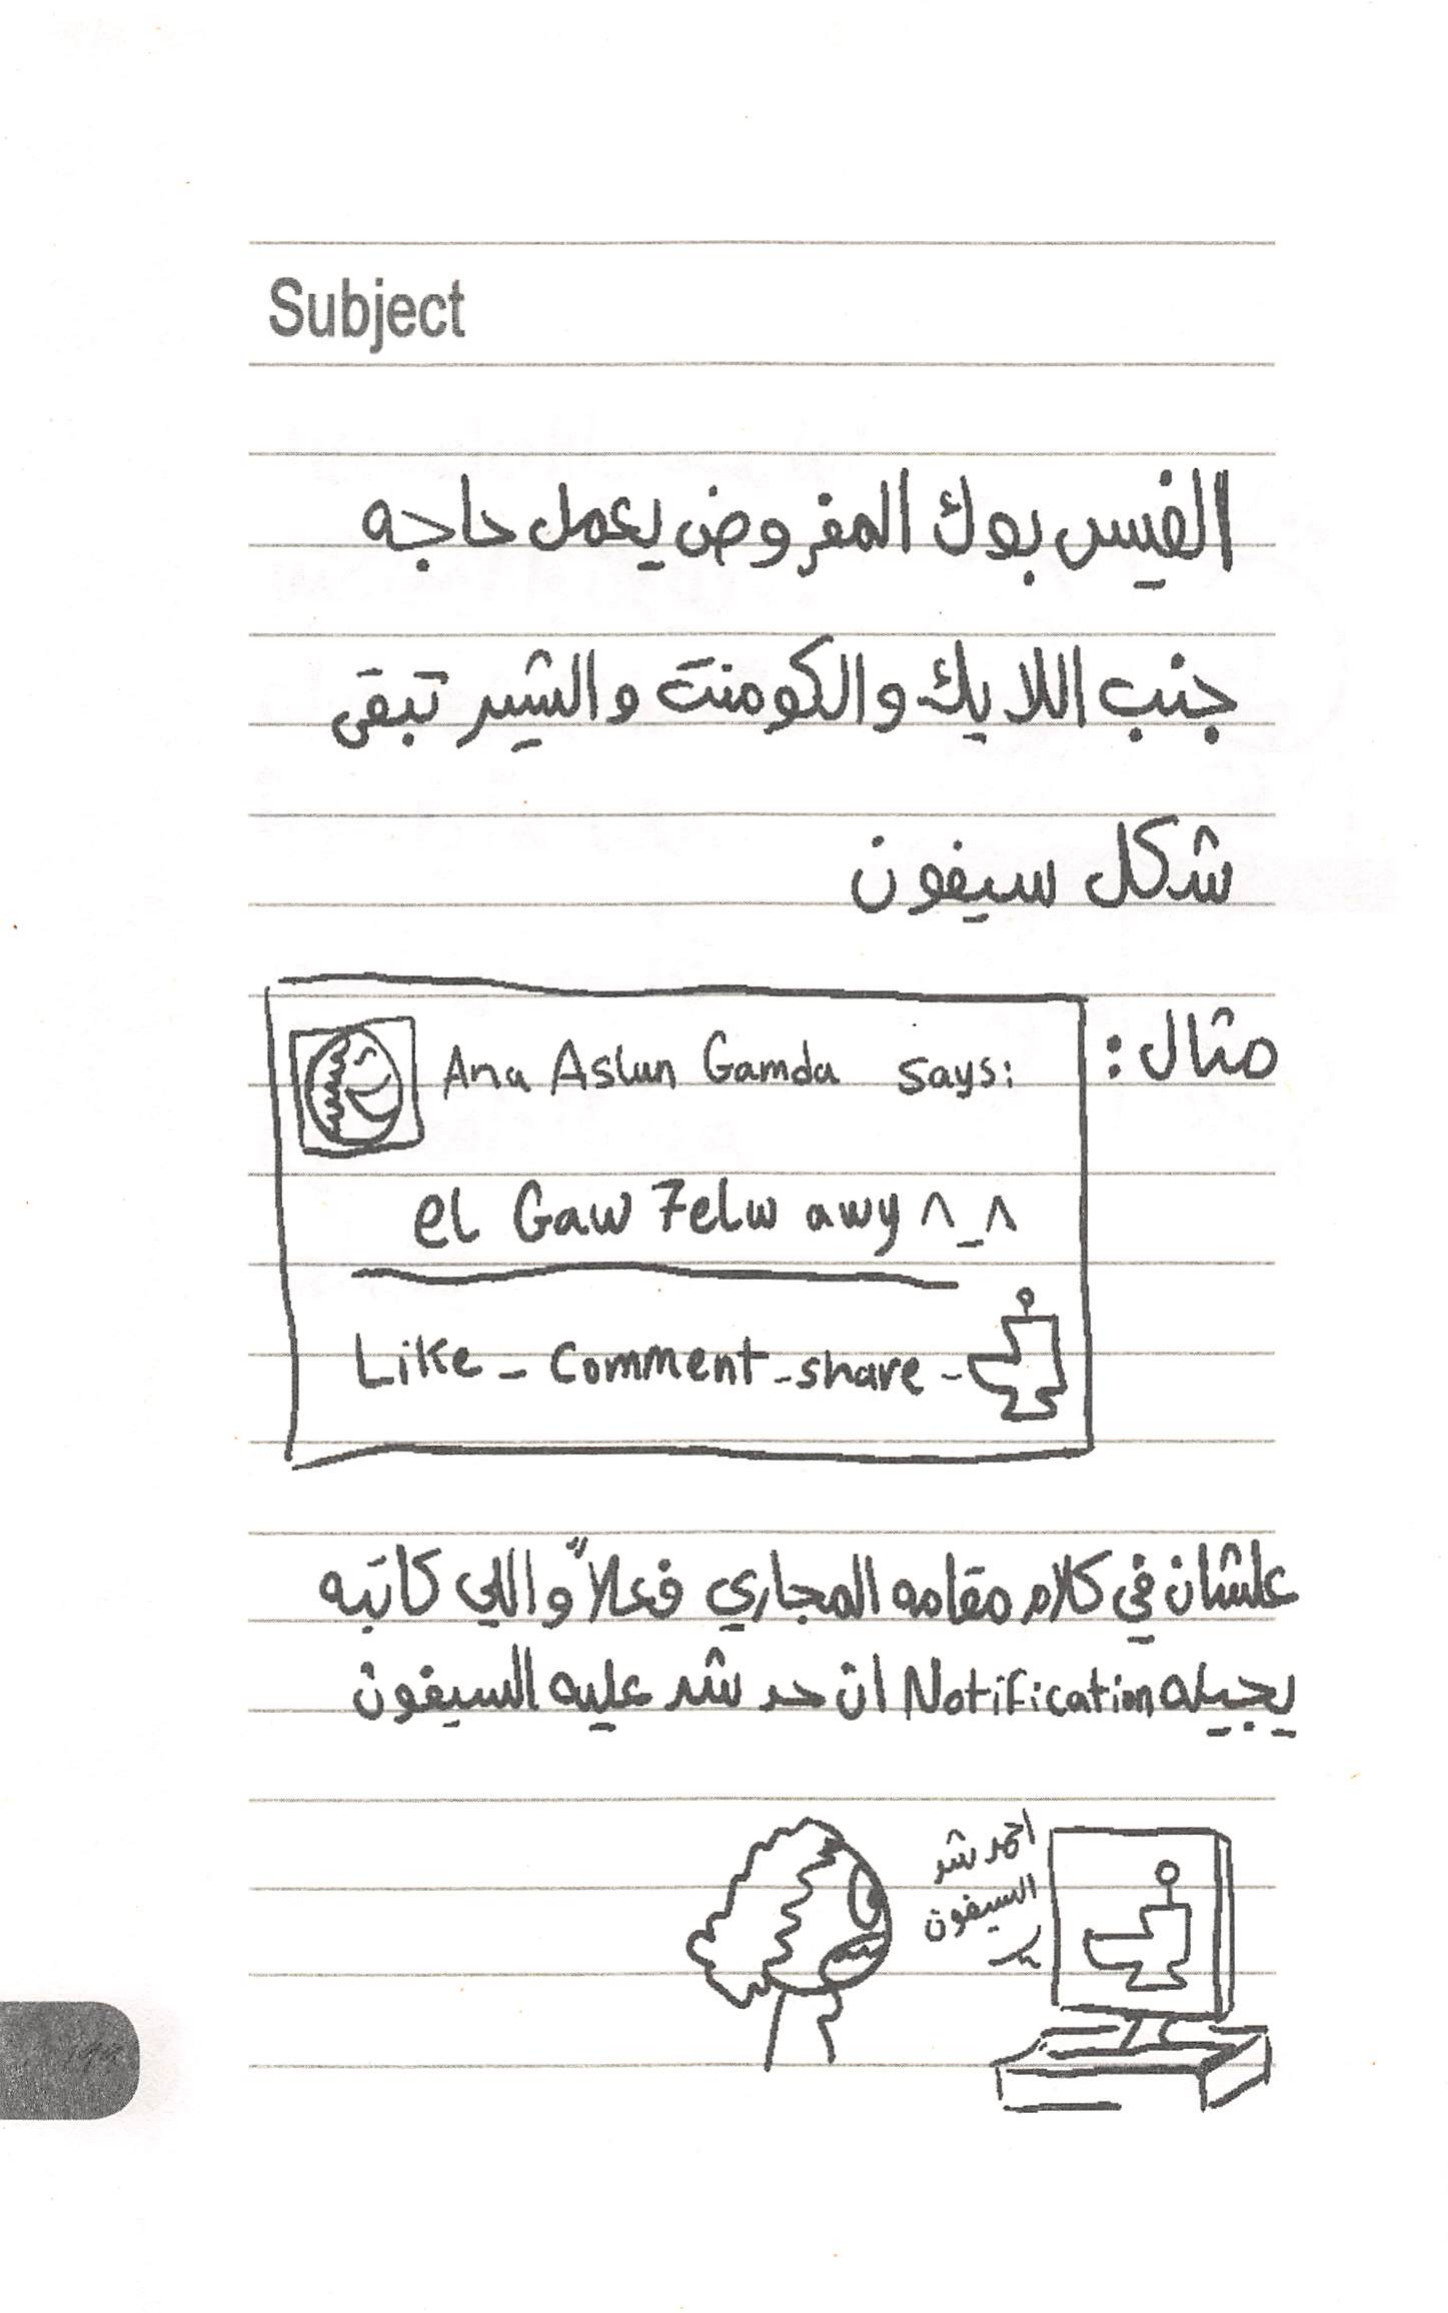 Subject
الفيس بوك المفروض يعمل حاجه
جنب اللايك والكومنت والشير تبقى
شكل سيفون
مثال:
Ana Aslun Gamda says:
el Gaw 7elw awy ^_^
Like - Comment - share -
علشان في كلام مقامه المجاري فعلاً واللي كاتبه
يجيله Notification ان حد شد عليه السيفون
احمد شد
السيفون